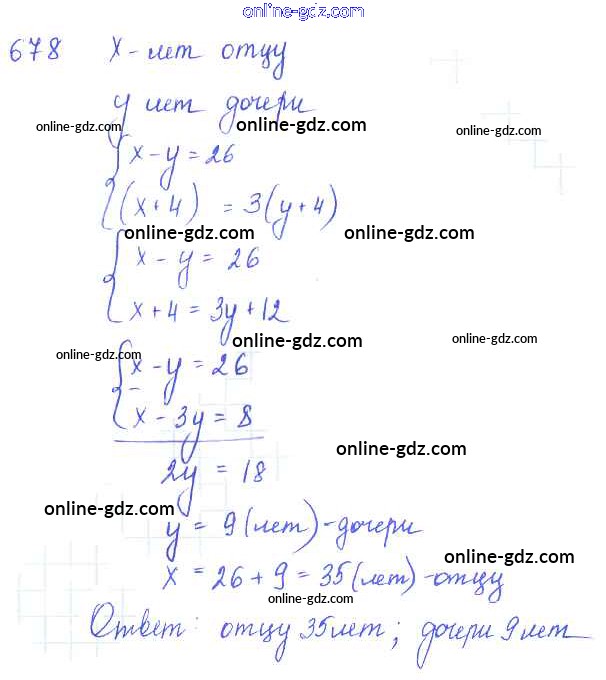 online-gdz.com
678 x - лет отцу
y лет дочери
online-gdz.com online-gdz.com online-gdz.com
x - y = 26
(x+4) = 3(y+4)
online-gdz.com online-gdz.com
x - y = 26
x + 4 = 3y + 12
online-gdz.com online-gdz.com online-gdz.com
x - y = 26
-
x - 3y = 8
online-gdz.com
2y = 18
online-gdz.com
y = 9 (лет) - дочери
online-gdz.com
x = 26 + 9 = 35 (лет) - отцу
online-gdz.com online-gdz.com
Ответ: отцу 35 лет; дочери 9 лет
online-gdz.com